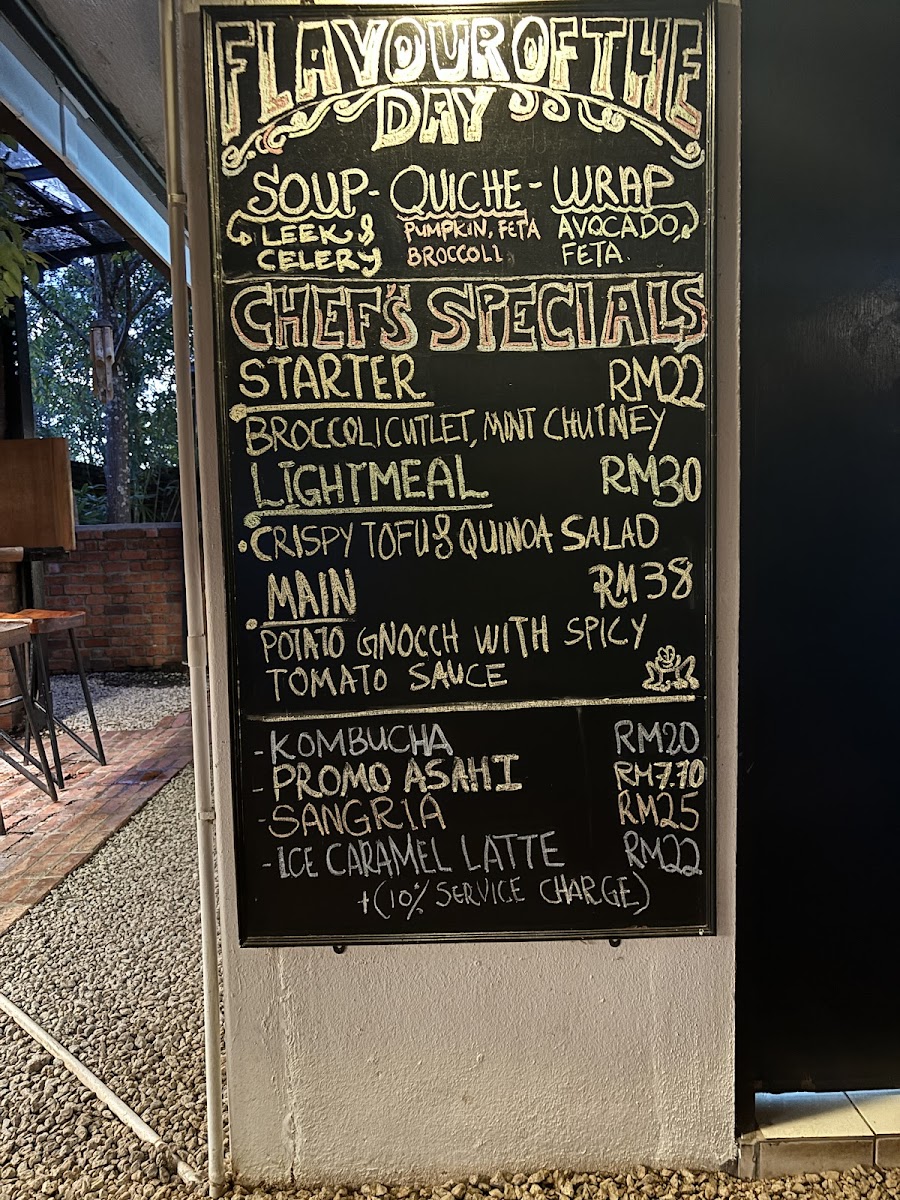 FLAVOUR OF THE
DAY
SOUP - QUICHE - WRAP
LEEK & PUMPKIN, FETA AVOCADO,
CELERY BROCCOLI FETA.
CHEF'S SPECIALS
STARTER RM22
BROCCOLI CUTLET, MINT CHUTNEY
LIGHT MEAL RM30
CRISPY TOFU & QUINOA SALAD
MAIN RM38
POTATO GNOCCH WITH SPICY
TOMATO SAUCE
- KOMBUCHA RM20
- PROMO ASAHI RM7.70
- SANGRIA RM25
- ICE CARAMEL LATTE RM22
+(10% SERVICE CHARGE)